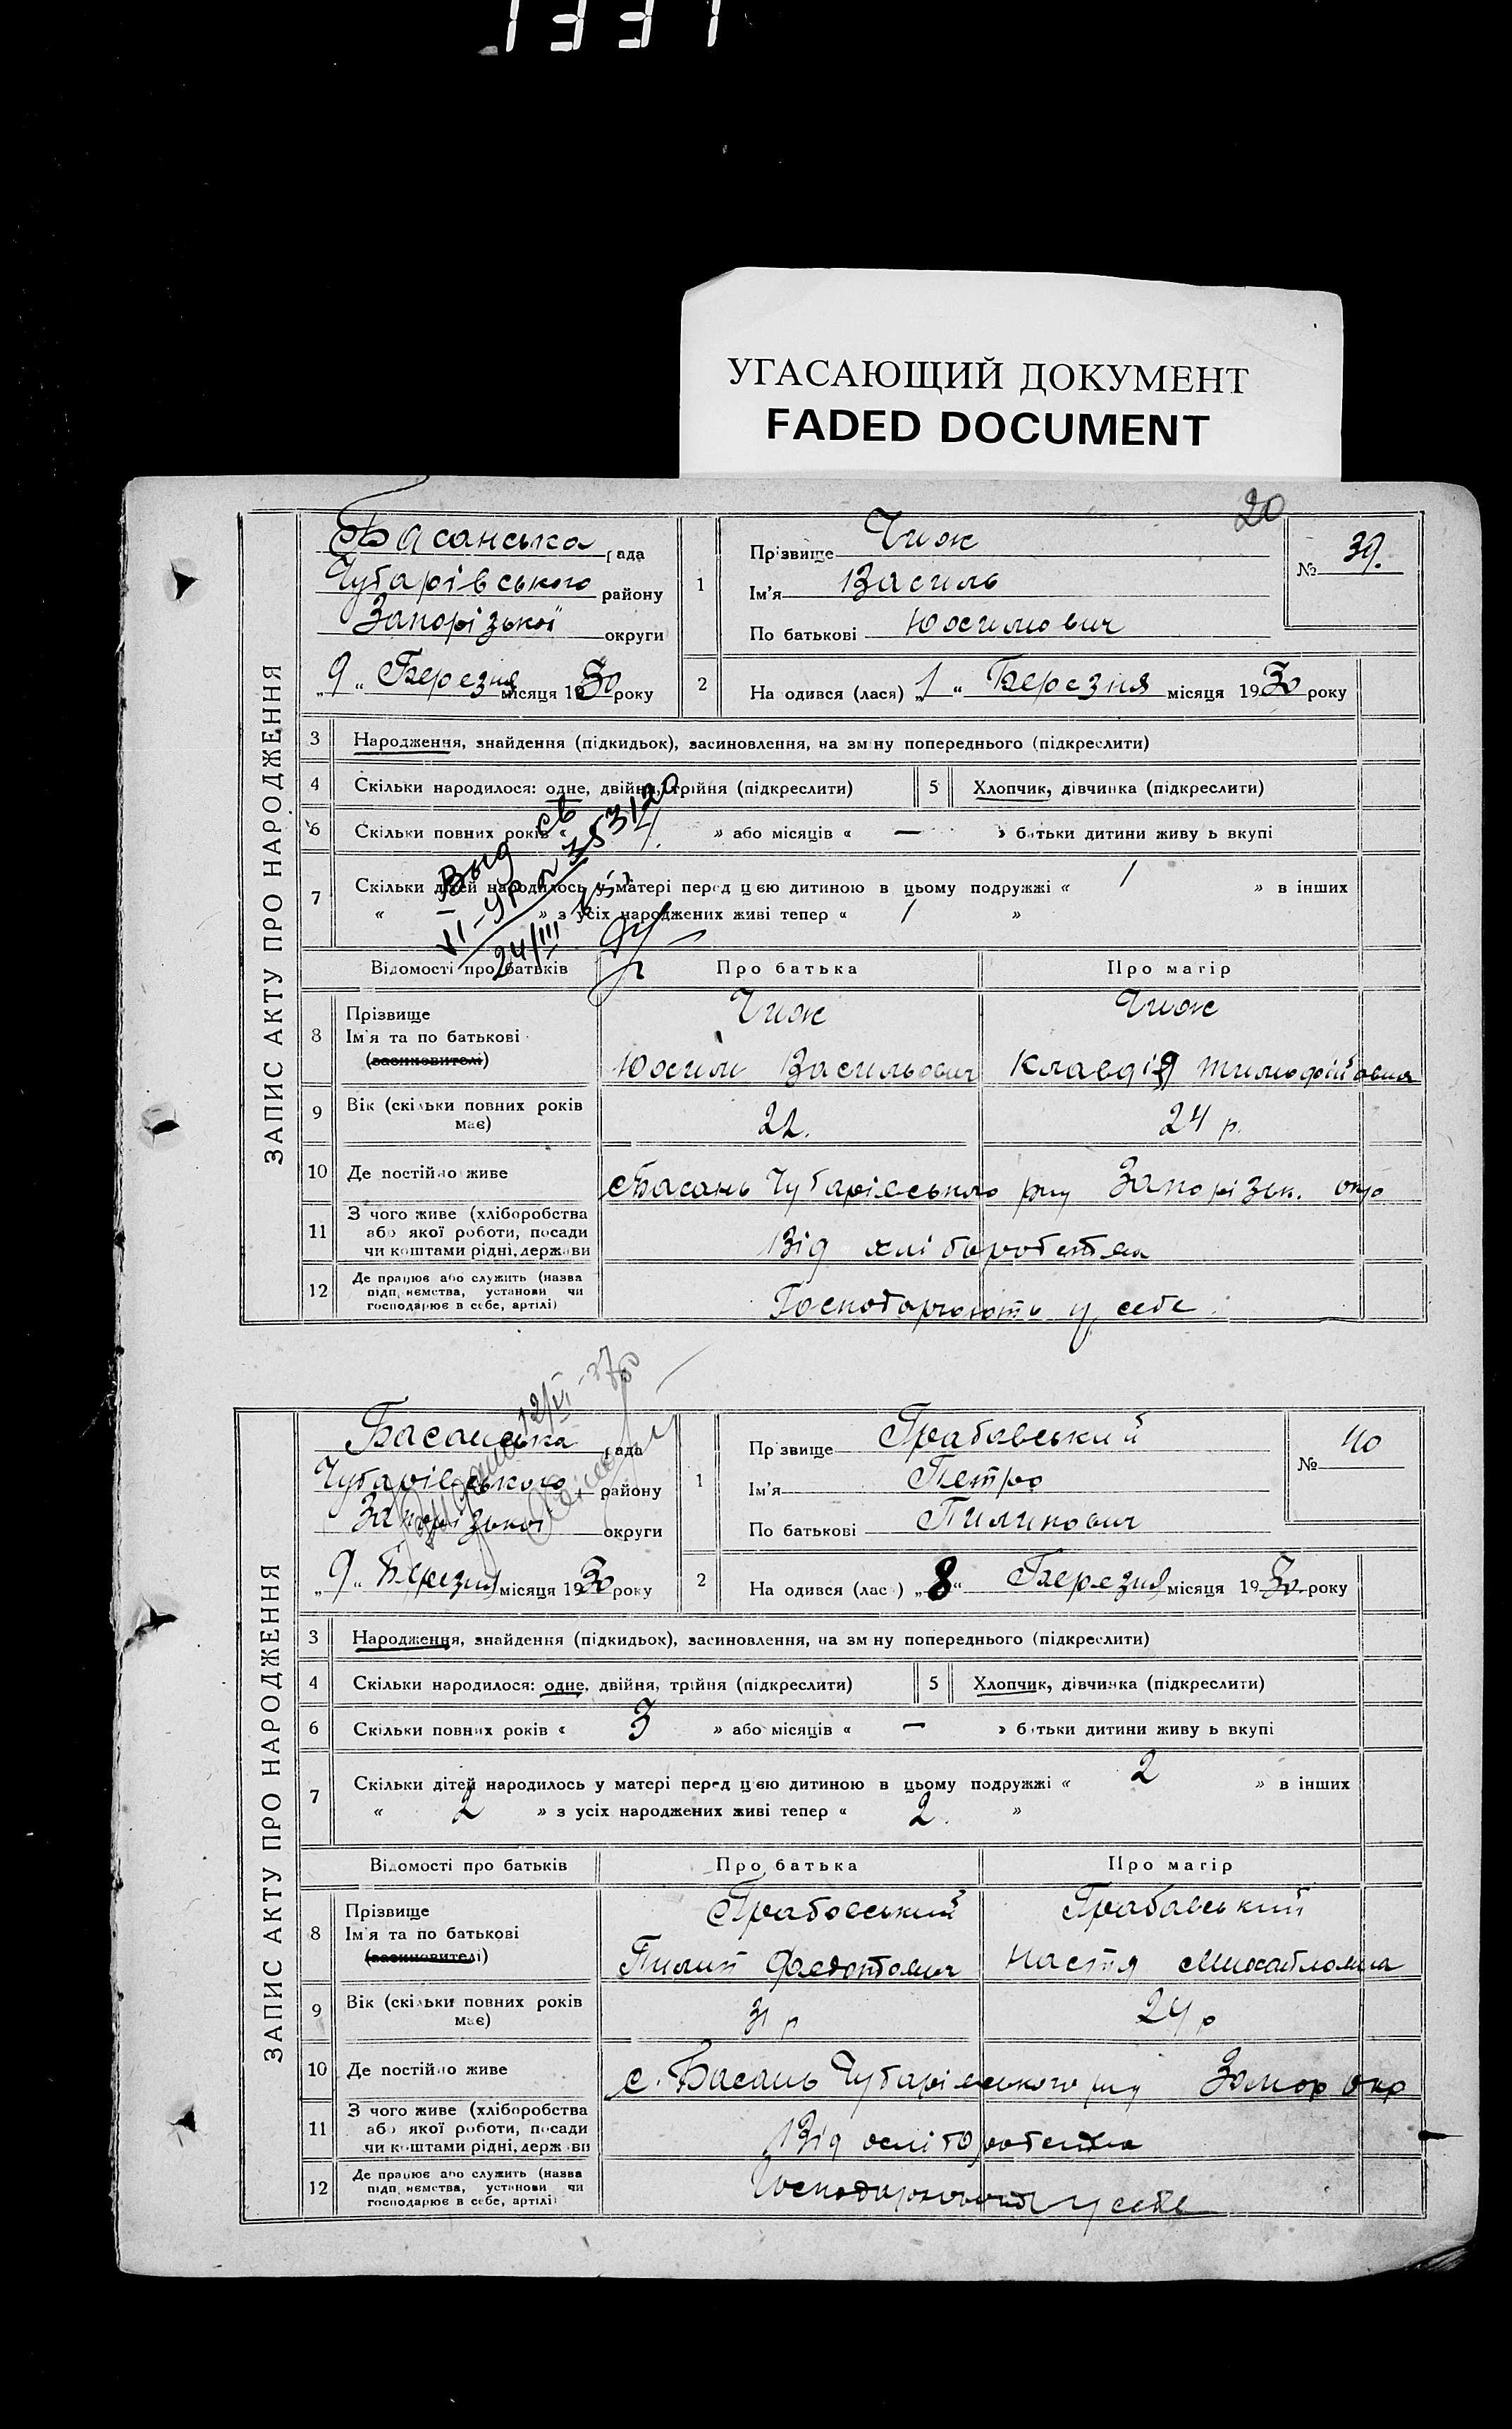 1337
УГАСАЮЩИЙ ДОКУМЕНТ
FADED DOCUMENT
20
ЗАПИС АКТУ ПРО НАРОДЖЕННЯ
Басанська рада
Чубарівського району
Запорізької округи
„9“ Березня місяця 1930 року
1 Прізвище Чиж
Ім'я Василь
По батькові Юосипович
№ 39.
2 На одився (лася) „1“ Березня місяця 1930 року
3 Народження, знайдення (підкидьок), засиновлення, на зміну попереднього (підкреслити)
4 Скільки народилося: одне, двійня, трійня (підкреслити)
5 Хлопчик, дівчинка (підкреслити)
6 Скільки повних років « 4. » або місяців « — » батьки дитини живуь вкупі
7 Скільки дітей народилось у матері перед цією дитиною в цьому подружжі « 1 » в інших
« » з усіх народжених живі тепер « 1 »
Выд св
VI-УР № 353120
24/III
Відомості про батьків Про батька Про матір
8 Прізвище
Ім'я та по батькові
(засиновителі)
Чиж Чиж
Юосип Васильович Клавдія Тимофійовна
9 Вік (скільки повних років має) 22. 24 р.
10 Де постійно живе с Басань Чубарівського рну Запорізьк. окр
11 З чого живе (хліборобства
або якої роботи, посади
чи коштами рідні, держави
Від хліборобства
12 Де працює або служить (назва
підприємства, установи чи
господарює в себе, артілі)
Господарюють у себе.
ЗАПИС АКТУ ПРО НАРОДЖЕННЯ
12/VI-37
Басанська рада
Чубарівського району
Запорізької округи
„9“ Березня місяця 1930 року
1 Прізвище Грабовський
Ім'я Петро
По батькові Пилипович
№ 40
2 На одився (лас) „8“ Березня місяця 1930 року
3 Народження, знайдення (підкидьок), засиновлення, на зміну попереднього (підкреслити)
4 Скільки народилося: одне, двійня, трійня (підкреслити)
5 Хлопчик, дівчинка (підкреслити)
6 Скільки повних років « 3 » або місяців « — » батьки дитини живуь вкупі
7 Скільки дітей народилось у матері перед цією дитиною в цьому подружжі « 2 » в інших
« 2 » з усіх народжених живі тепер « 2. »
Відомості про батьків Про батька Про матір
8 Прізвище
Ім'я та по батькові
(засиновителі)
Грабовський Грабавський
Пилип Федотович Настя Михайловна
9 Вік (скільки повних років має) 31 р 24 р
10 Де постійно живе с. Басань Чубарівського рну Запор окр
11 З чого живе (хліборобства
або якої роботи, посади
чи коштами рідні, держави
Від хліборобства
12 Де працює або служить (назва
підприємства, установи чи
господарює в себе, артілі)
Господарюють у себе